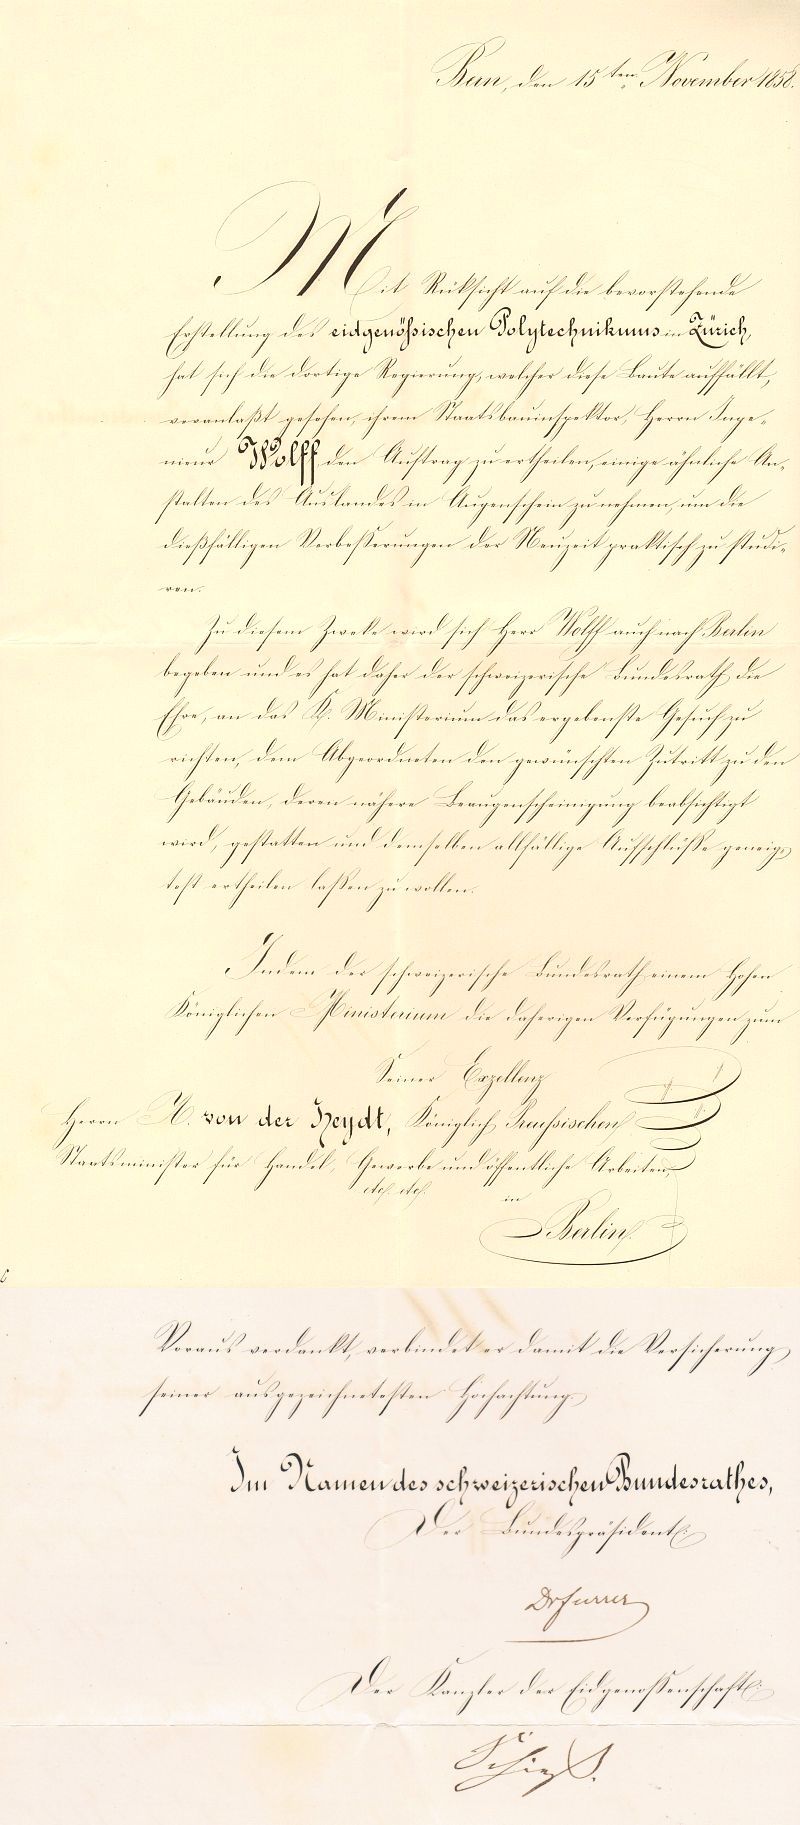 Bern, den 15ten November 1858.
Mit Rüksicht auf die bevorstehende
Erstellung des eidgenößischen Polytechnikums in Zürich,
hat sich die dortige Regierung, welcher diese Baute auffällt,
veranlaßt gesehen, ihrem Staatsbauinspektor, Herrn Inge-
nieur Wolff den Auftrag zu ertheilen, einige ähnliche An-
stalten des Auslandes in Augenschein zu nehmen, um die
dießfälligen Verbeßerungen der Neuzeit praktisch zu studi-
ren.
Zu diesem Zweke wird sich Herr Wolff auch nach Berlin
begeben und es hat daher der schweizerische Bundesrath die
Ehre, an das K. Ministerium das ergebenste Gesuch zu
richten, dem Abgeordneten den gewünschten Zutritt zu den
Gebäuden, deren nähere Beaugenscheinigung beabsichtigt
wird, gestatten und demselben allfällige Aufschlüße geneig-
test ertheilen laßen zu wollen.
Indem der schweizerische Bundesrath einem Hohen
Königlichen Ministerium die daherigen Verfügungen zum
Seiner Exzellenz
Herrn A. von der Heydt, Königlich Preußischen
Staatsminister für Handel, Gewerbe und öffentliche Arbeiten,
etc. etc. in
Berlin.
Voraus verdankt, verbindet er damit die Versicherung
seiner ausgezeichnetesten Hochachtung.
Im Namen des schweizerischen Bundesrathes,
Der Bundespräsident:
Dr Furrer
Der Kanzler der Eidgenoßenschaft:
Schieß.